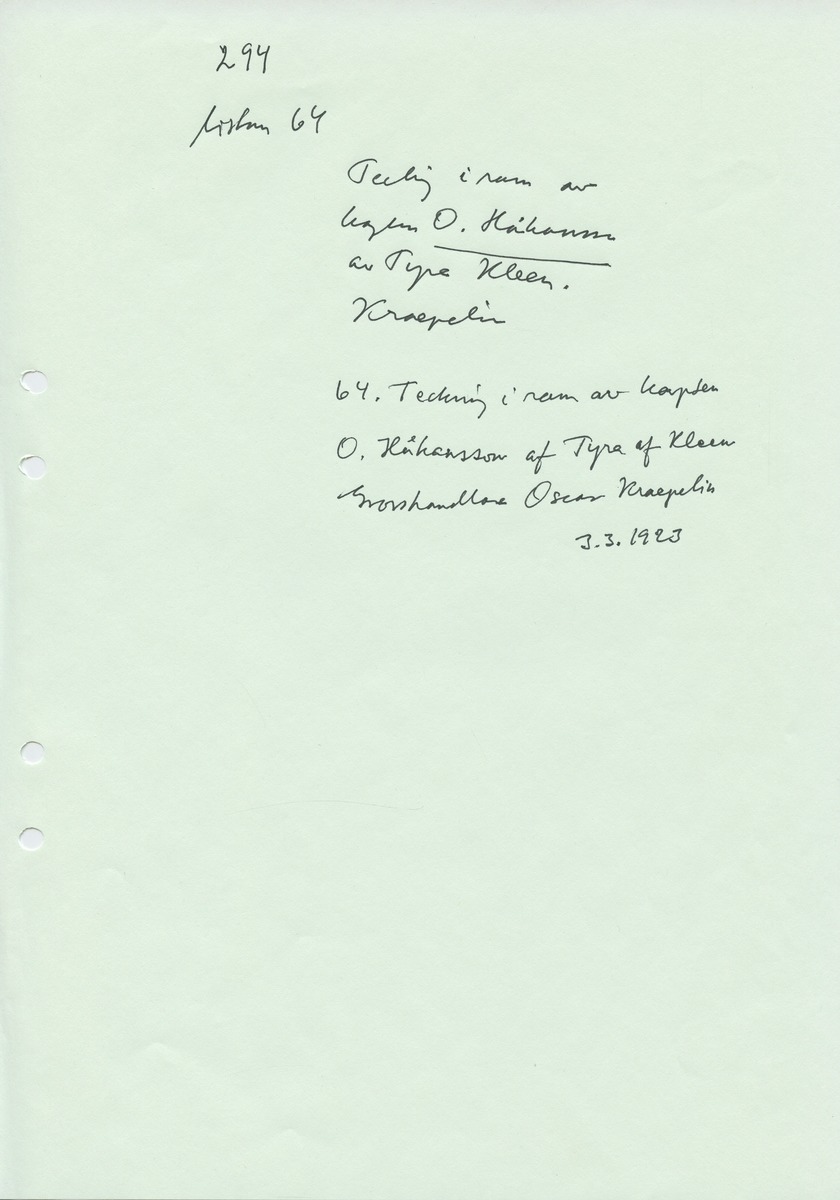 294
listan 64
Teckning i ram av
kapten O. Håkansson
av Tyra Kleen.
Kraepelin
64. Teckning i ram av kapten
O. Håkansson af Tyra af Kleen
Grosshandlare Oscar Kraepelin
3.3.1923